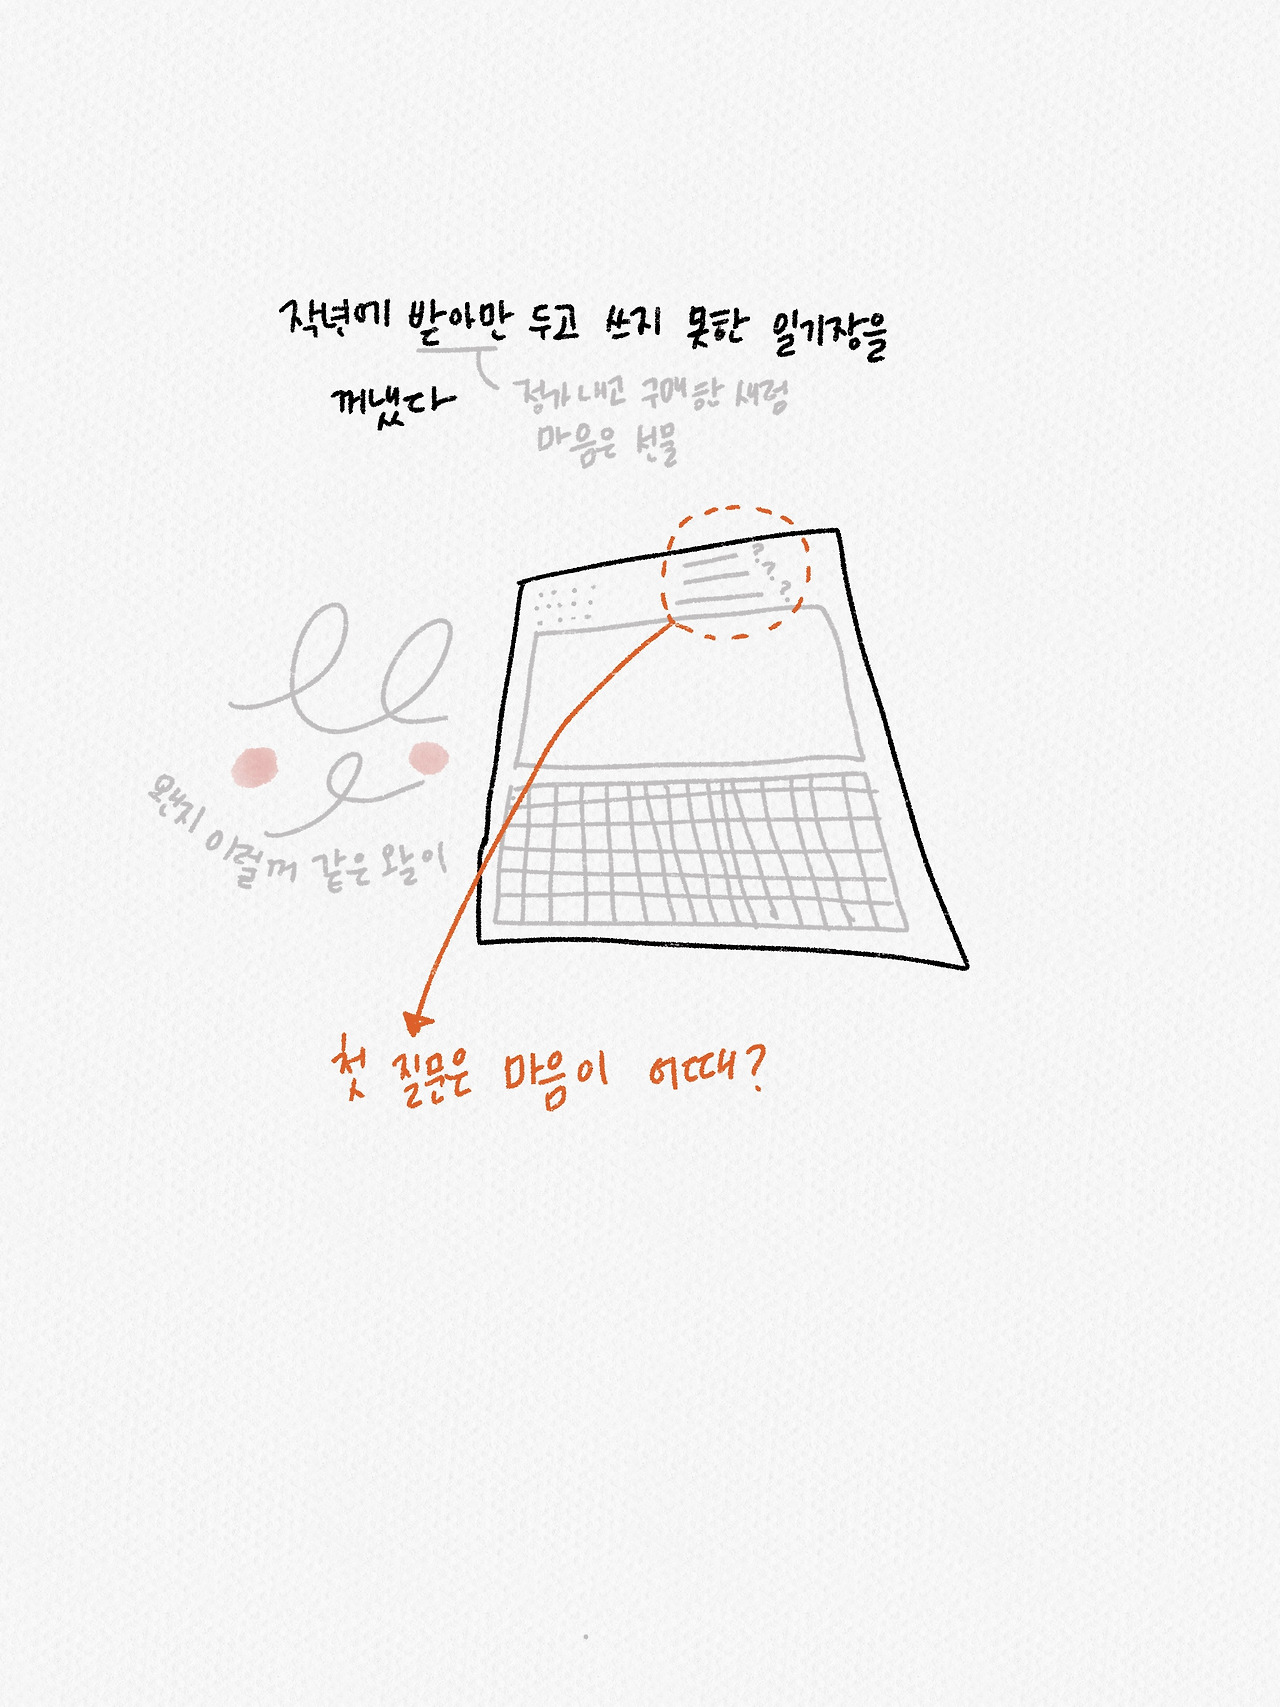 작년에 받아만 두고 쓰지 못한 일기장을
꺼냈다
정가 내고 구매한 새럼
마음은 선물
? ? ?
왠지 이럴꺼 같은 왈이
첫 질문은 마음이 어때?